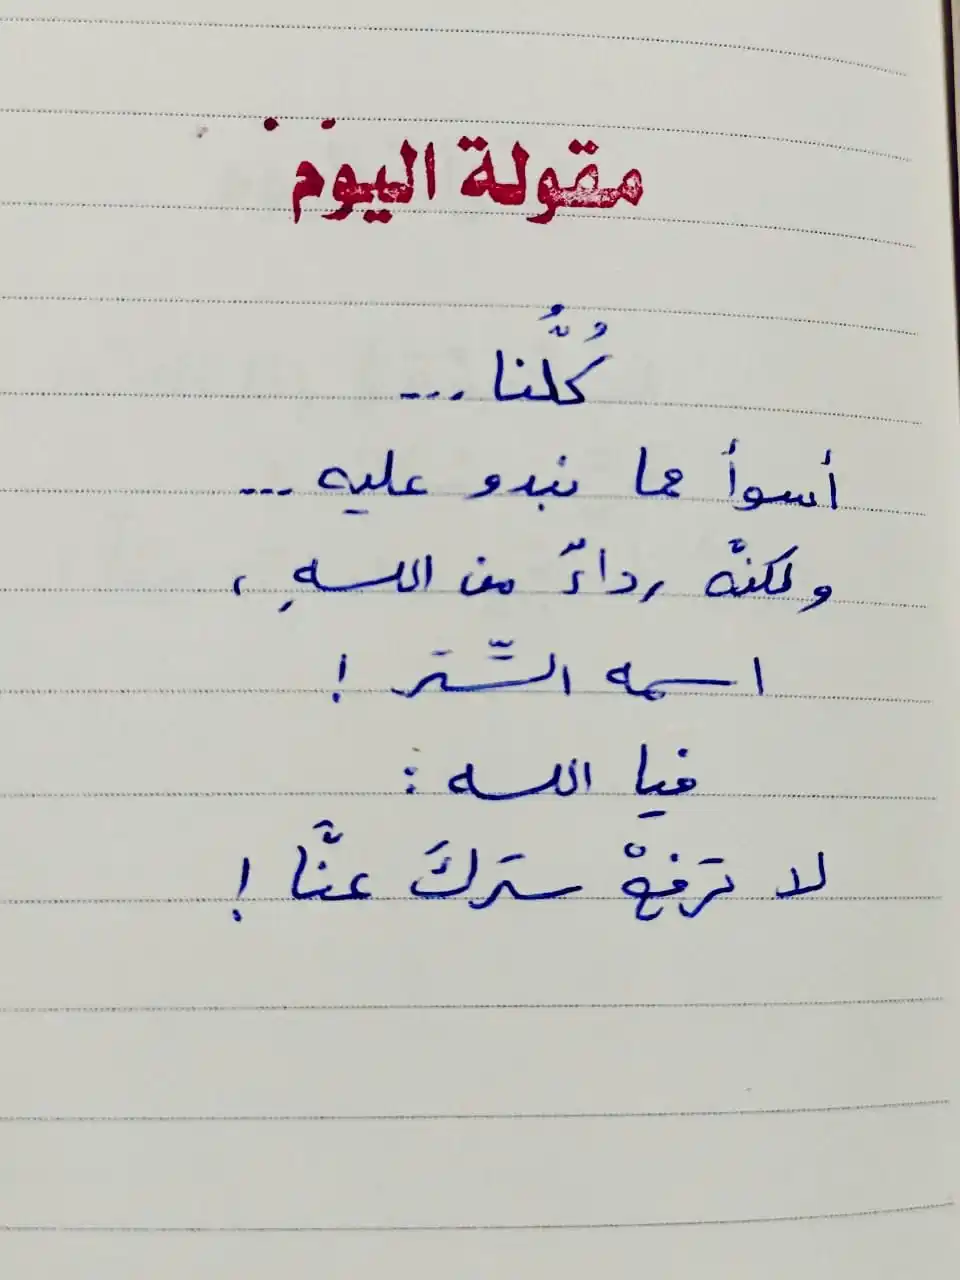 مقولة اليوم
كُلُّنا ...
أسوأ مما نبدو عليه ...
ولكنّه رداءٌ من اللهِ ،
اسمه السّتر !
فيا الله :
لا ترفعْ ستركَ عنَّا !